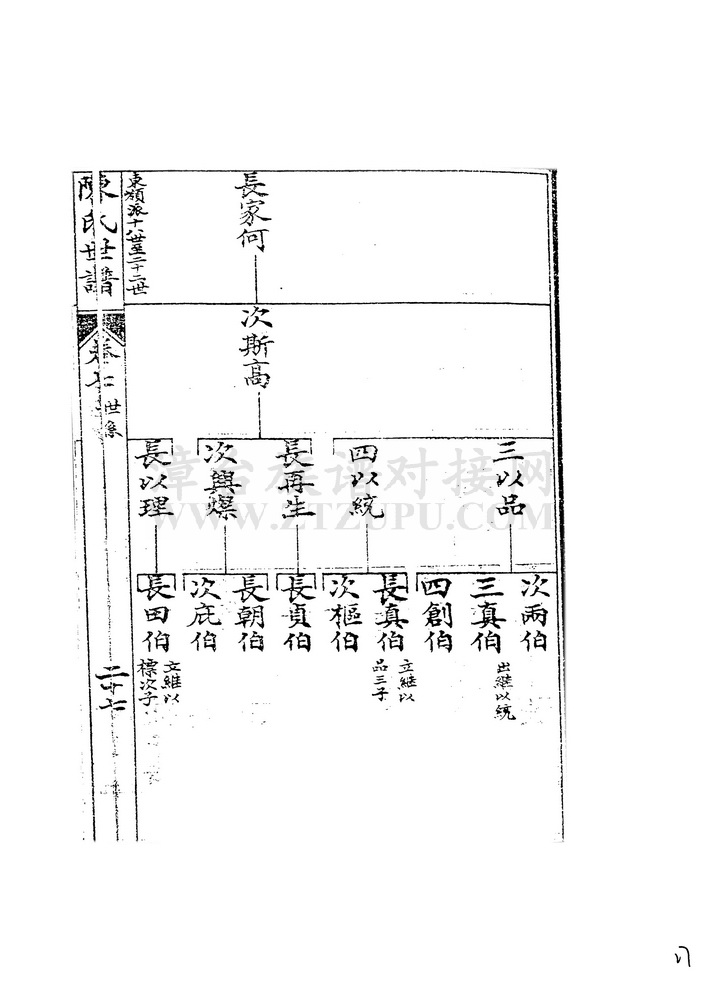 長家何
次斯高
三以品
四以統
長再生
次興燦
長以理
次兩伯
三真伯
出繼以統
四創伯
長真伯
立繼以
品三子
次樞伯
長貞伯
長朝伯
次庇伯
長田伯
立繼以
標次子
東嶺派十八世至二十二世
陳氏世譜
卷七
世系
二十七
章台族谱对接网
WWW.ZTZUPU.COM